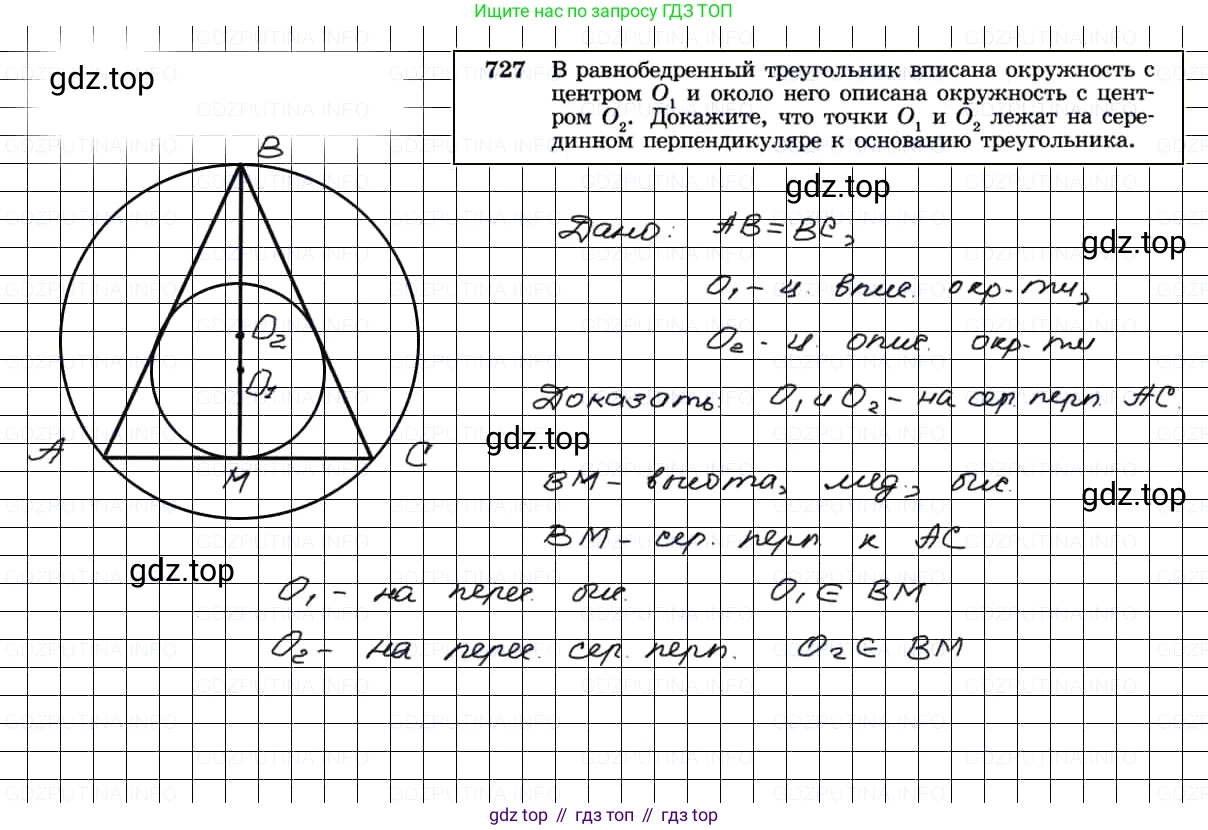 Ищите нас по запросу ГДЗ ТОП
gdz.top
727 В равнобедренный треугольник вписана окружность с
центром O₁ и около него описана окружность с цент-
ром O₂. Докажите, что точки O₁ и O₂ лежат на сере-
динном перпендикуляре к основанию треугольника.
B
gdz.top
Дано: AB=BC,
gdz.top
O₁ - ц. впис. окр-ти,
O₂ - ц. опис. окр-ти
O₂
O₁
Доказать: O₁ и O₂ - на сер. перп. AC.
gdz.top
A
C
M
BM - высота, мед., бис.
gdz.top
BM - сер. перп. к AC
gdz.top
O₁ - на перес. бис. O₁ ∈ BM
O₂ - на перес. сер. перп. O₂ ∈ BM
GDZPUTINA.INFO
gdz top // гдз топ // гдз top